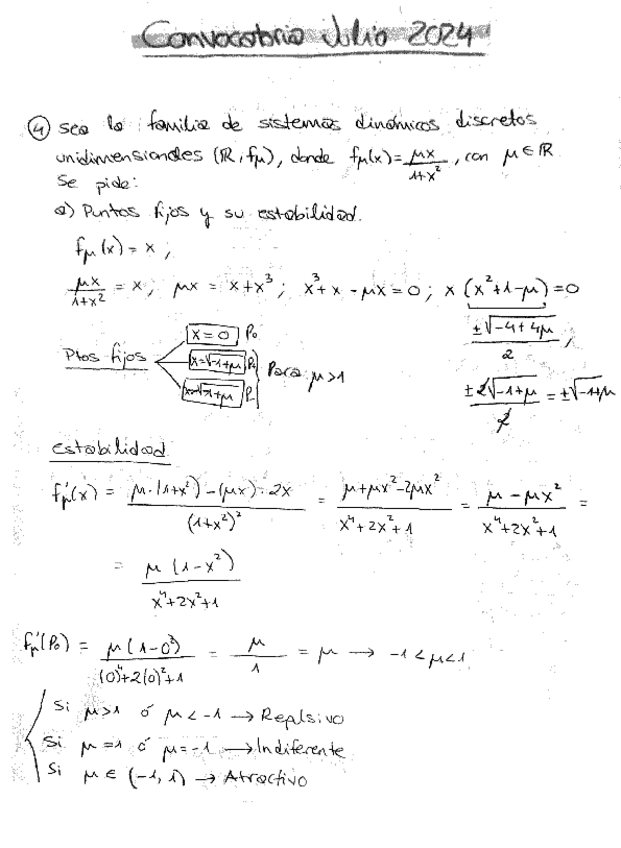 Convocatoria Julio 2024
④ sea la familia de sistemas dinámicos discretos
unidimensionales (ℝ, fμ), donde fμ(x) = μx/(1+x²), con μ ∈ ℝ
Se pide:
a) Puntos fijos y su estabilidad.
fμ(x) = x ;
μx/(1+x²) = x ; μx = x+x³ ; x³+x-μx = 0 ; x(x²+1-μ) = 0
±√(-4+4μ)/2 ;
Ptos fijos
x = 0 P₀
x=√(-1+μ) P₊
x=-√(-1+μ) P₋
Para μ>1
±2√(-1+μ)/2 = ±√(-1+μ)
estabilidad
f'μ(x) = (μ·(1+x²) - (μx)·2x)/(1+x²)² = (μ+μx²-2μx²)/(x⁴+2x²+1) = (μ-μx²)/(x⁴+2x²+1) =
= μ(1-x²)/(x⁴+2x²+1)
f'μ(P₀) = μ(1-0²)/((0)⁴+2(0)²+1) = μ/1 = μ → -1<μ<1
Si μ>1 ó μ<-1 → Replsivo
Si μ=1 ó μ=-1 → Indiferente
Si μ ∈ (-1, 1) → Atractivo